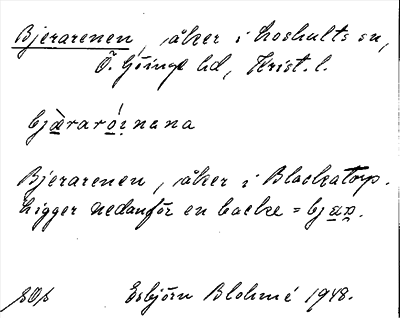 Bjerarenen, åker i Loshults sn,
Ö. Göinge hd, Krist. l.
bjæraróinana
Bjerarenen, åker i Blackatorp.
Ligger nedanför en backe = bjær.
Esbjörn Blohmé 1948.